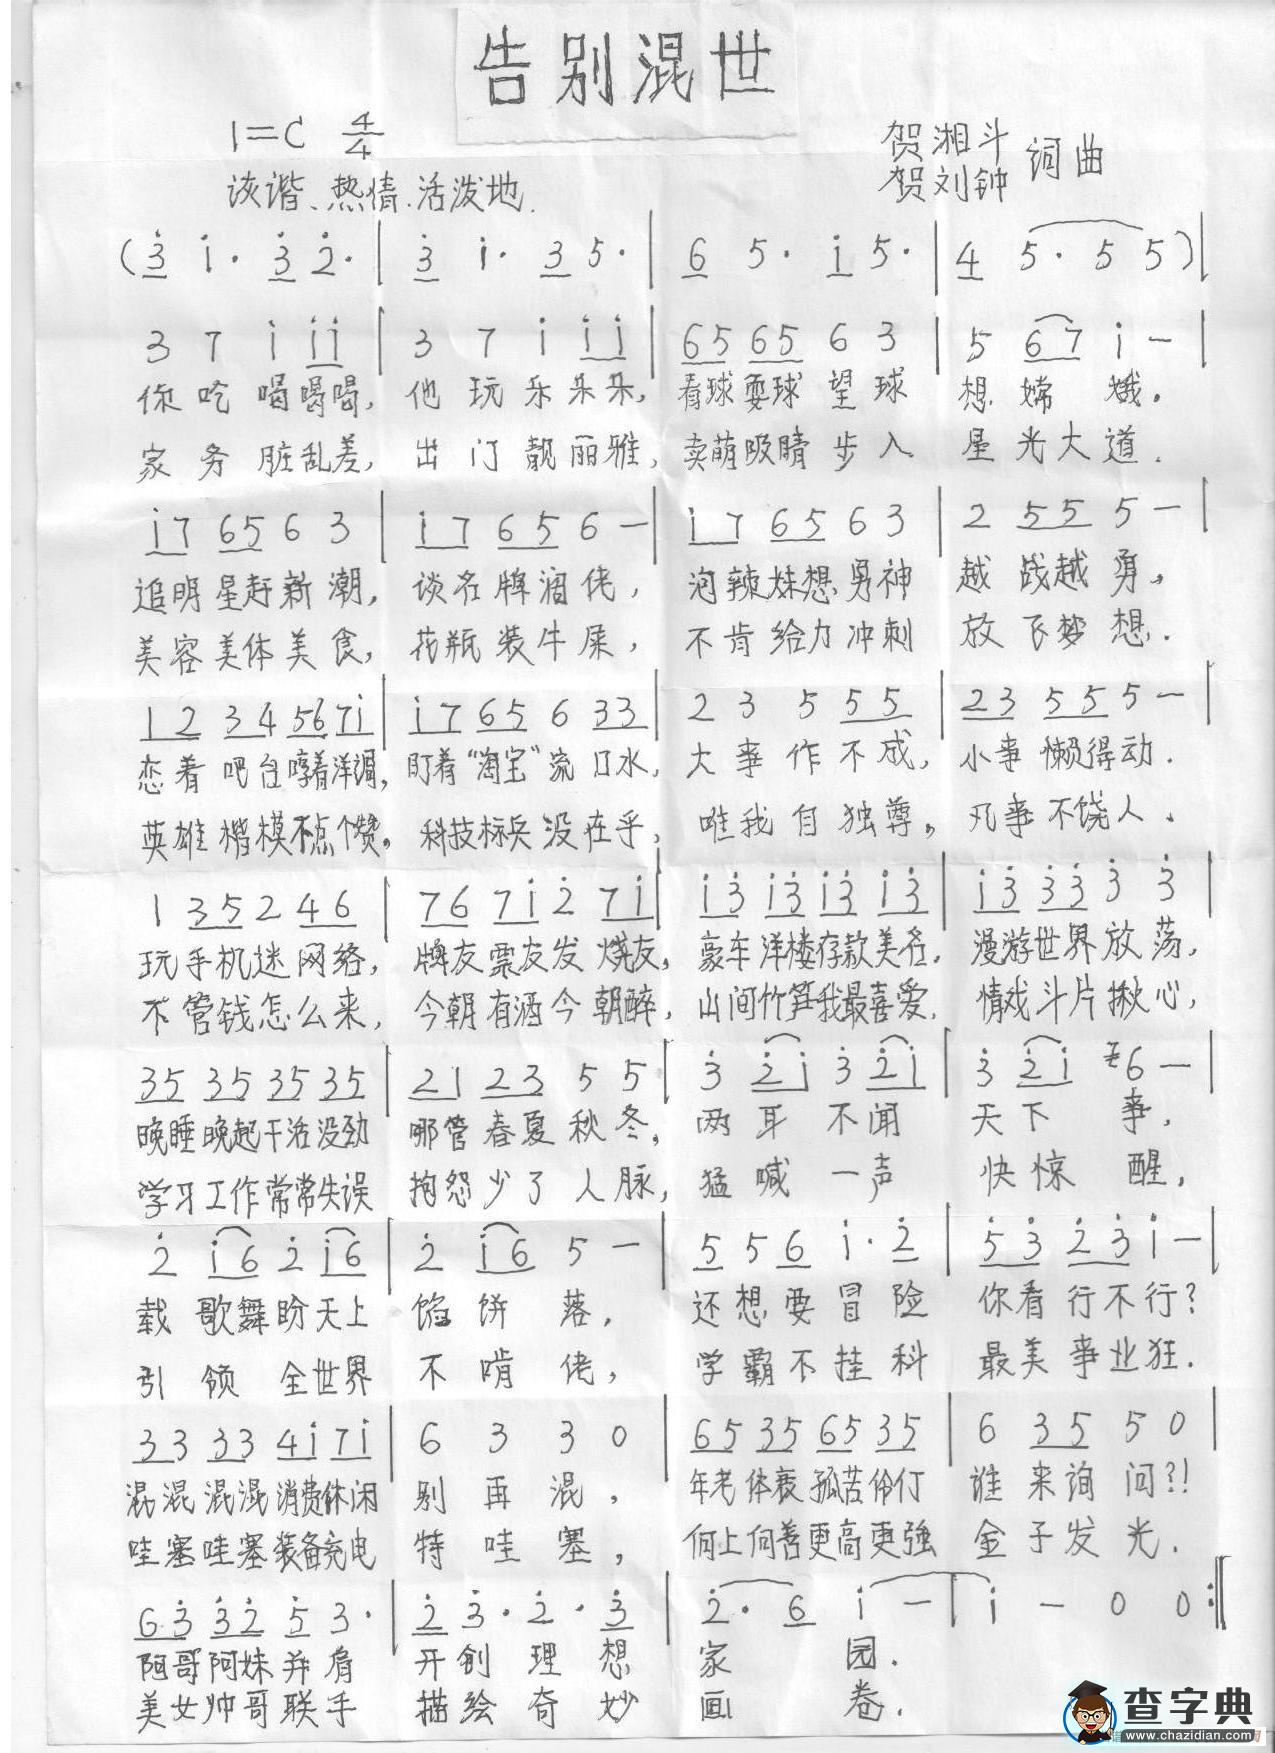 告别混世
1=C 4/4
贺湘斗
贺刘钟 词曲
诙谐、热情、活泼地.
(3̇ i· 3̇ 2̇· | 3̇ i· 3 5· | 6 5· i 5· | 4 5· 5 5) |
3 7 i i i | 3 7 i i i | 65 65 6 3 | 5 67 i — |
你吃喝喝喝, 他玩乐朵朵, 看球耍球望球 想嫦娥.
家务脏乱差, 出门靓丽雅, 卖萌吸睛步入 星光大道.
i7 65 6 3 | i7 65 6 — | i7 65 6 3 | 2 55 5 — |
追明星赶新潮, 谈名牌泪佬, 泡辣妹想男神 越战越勇,
美容美体美食, 花瓶装牛屎, 不肯给力冲刺 放飞梦想.
12 34 56 7i | i7 65 6 33 | 2 3 5 55 | 23 55 5 — |
恋着吧台哼着洋调, 盯着“淘宝”流口水, 大事作不成, 小事懒得动.
英雄楷模不点个赞, 科技标兵没在乎, 唯我自独尊, 凡事不饶人.
1 35 2 46 | 76 7i 2̇ 7i | i3̇ i3̇ i3̇ i3̇ | i3̇ 3̇3̇ 3̇ 3̇ |
玩手机迷网络, 牌友票友发烧友, 豪车洋楼存款美名, 漫游世界放荡,
不管钱怎么来, 今朝有酒今朝醉, 山间竹笋我最喜爱, 情戏斗片揪心,
35 35 35 35 | 21 23 5 5 | 3̇ 2̇i 3̇ 2̇i | 3̇ 2̇i 6 — |
晚睡晚起干活没劲 哪管春夏秋冬, 两耳不闻 天下事,
学习工作常常失误 抱怨少了人脉, 猛喊一声 快惊醒,
2̇ i6 2̇ i6 | 2̇ i6 5 — | 5 5 6 i· 2̇ | 5̇3̇ 2̇3̇ i — |
载歌舞盼天上 馅饼落, 还想要冒险 你看行不行?
引领全世界 不啃佬, 学霸不挂科 最美事业狂.
33 33 4i 7i | 6 3 3 0 | 65 35 65 35 | 6 35 5 0 |
混混混混消费休闲 别再混, 年老体衰孤苦伶仃 谁来询问?!
哇塞哇塞装备充电 特哇塞, 向上向善更高更强 金子发光.
63̇ 3̇2̇ 5̇ 3· | 2̇ 3̇· 2̇· 3̇ | 2̇· 6 i — | i — 0 0 :‖
阿哥阿妹并肩 开创理想 家园.
美女帅哥联手 描绘奇妙 画卷.
查字典
www.chazidian.com